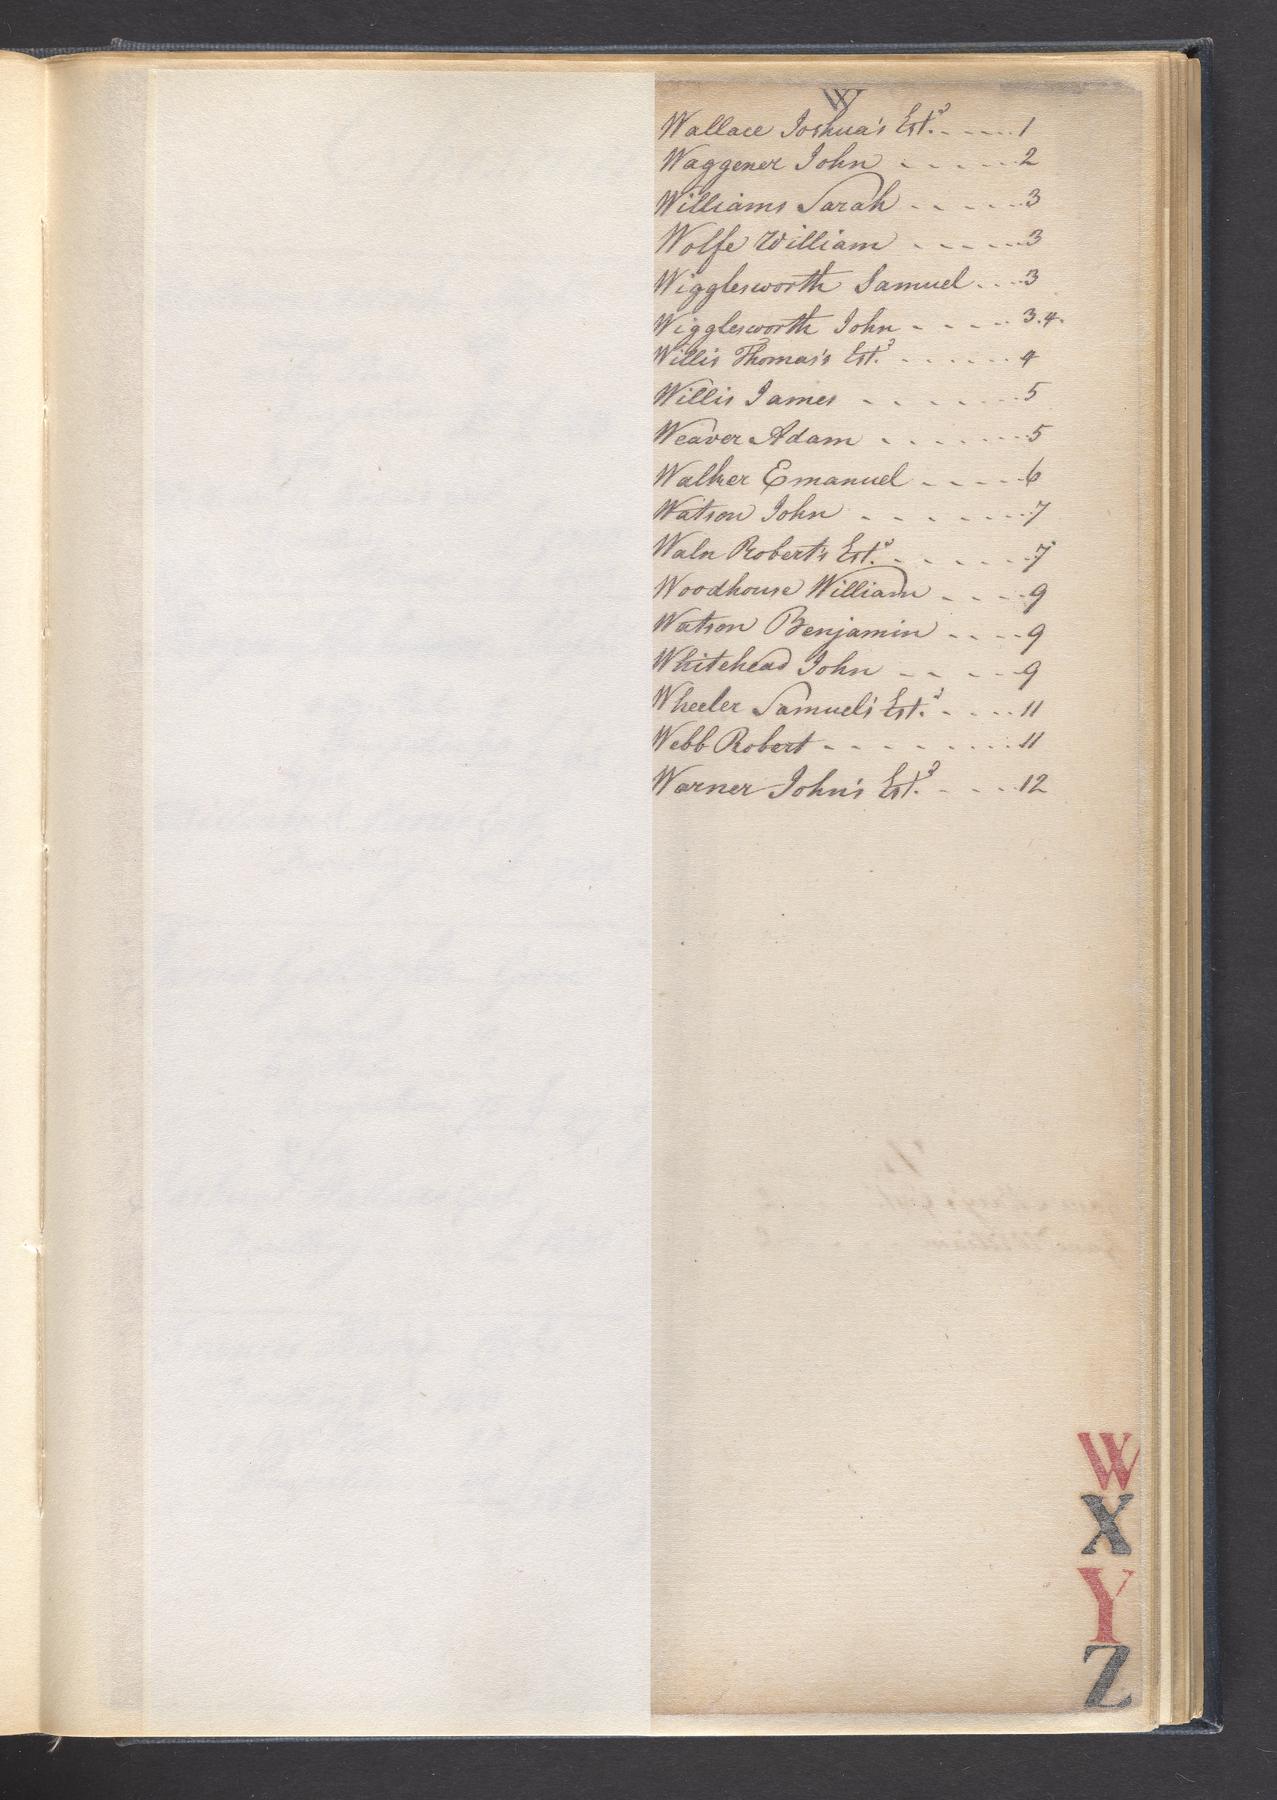 W
Wallace Joshua's Est.ᵉ - - - - 1
Waggener John - - - - - 2
Williams Sarah - - - - - 3
Wolfe William - - - - - 3
Wigglesworth Samuel - - - 3
Wigglesworth John - - - - 3.4.
Willis Thomas's Est.ᵉ - - - - - 4
Willis James - - - - - - 5
Weaver Adam - - - - - - 5
Walker Emanuel - - - - 6
Watson John - - - - - - 7
Waln Robert's Est.ᵉ - - - - - 7
Woodhouse William - - - - 9
Watson Benjamin - - - - 9
Whitehead John - - - - 9
Wheeler Samuel's Est.ᵉ - - - - 11
Webb Robert - - - - - - - 11
Warner John's Est.ᵉ - - - - 12
W
X
Y
Z